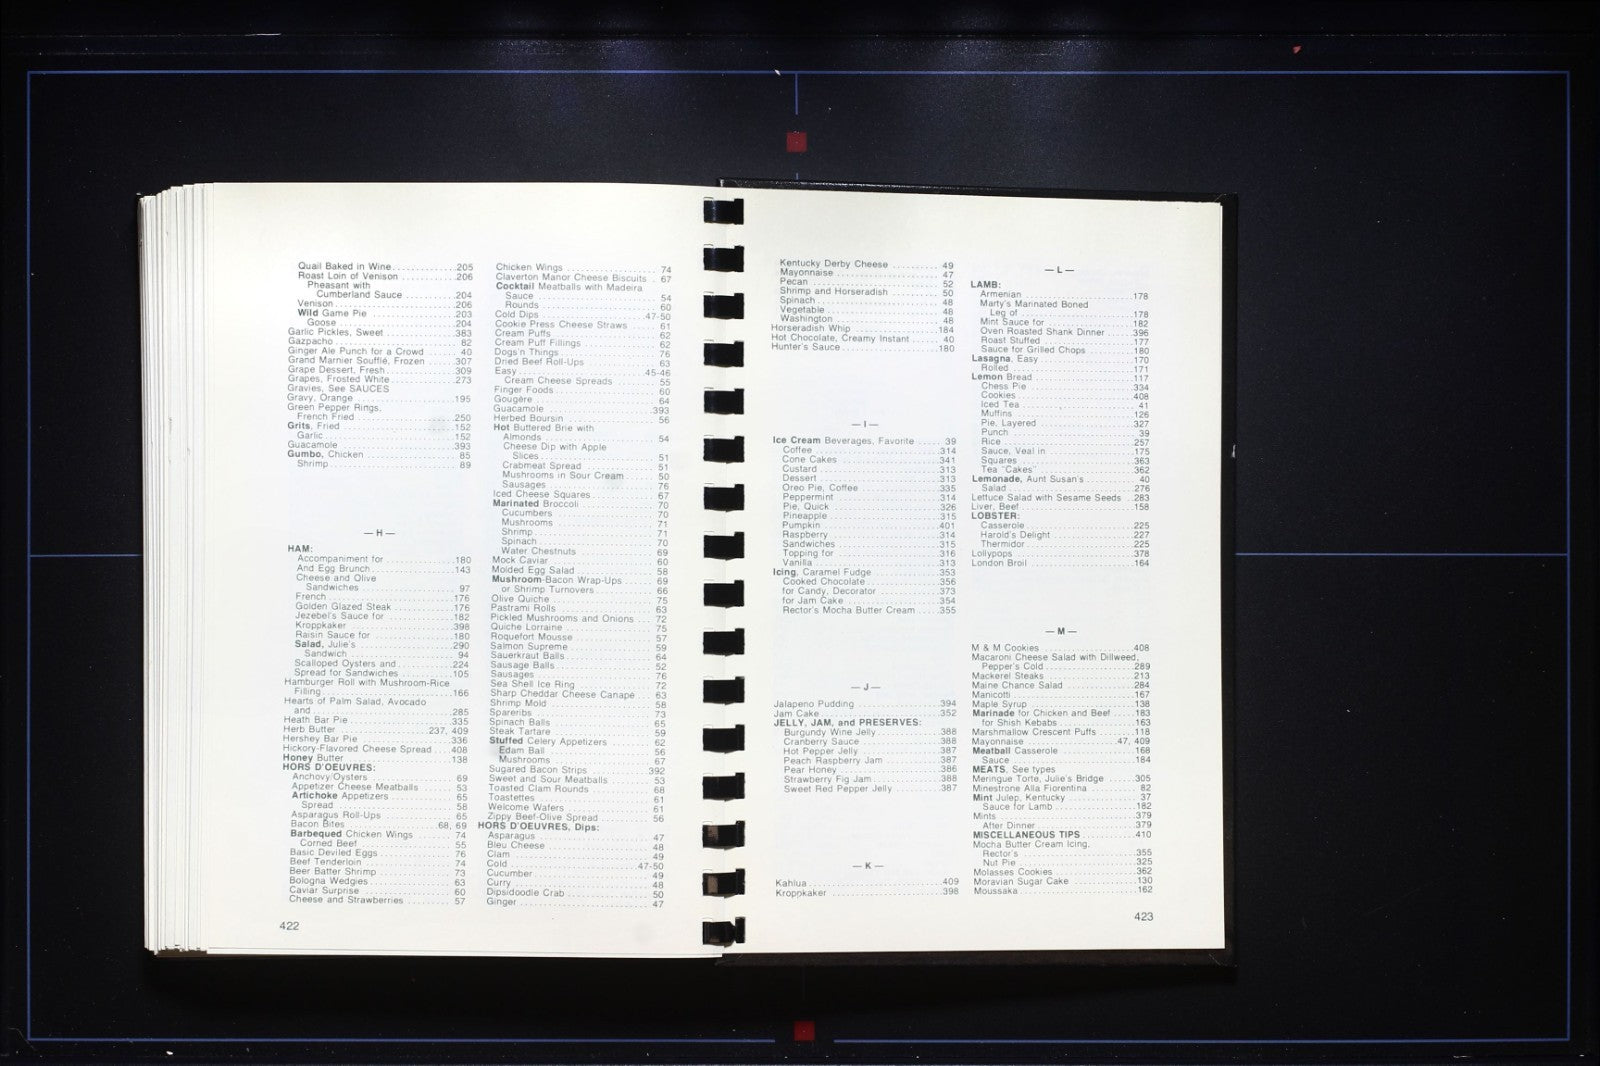 Quail Baked in Wine.............205
Roast Loin of Venison............206
Pheasant with
Cumberland Sauce...........204
Venison.........................206
Wild Game Pie..................203
Goose.........................204
Garlic Pickles, Sweet..............383
Gazpacho........................82
Ginger Ale Punch for a Crowd......40
Grand Marnier Soufflé, Frozen.....307
Grape Dessert, Fresh.............309
Grapes, Frosted White............273
Gravies, See SAUCES
Gravy, Orange...................195
Green Pepper Rings,
French Fried...................250
Grits, Fried......................152
Garlic.........................152
Guacamole......................393
Gumbo, Chicken..................85
Shrimp.........................89
—H—
HAM:
Accompaniment for.............180
And Egg Brunch................143
Cheese and Olive
Sandwiches...................97
French........................176
Golden Glazed Steak............176
Jezebel's Sauce for.............182
Kroppkaker....................398
Raisin Sauce for...............180
Salad, Julie's..................290
Sandwich.....................94
Scalloped Oysters and...........224
Spread for Sandwiches..........105
Hamburger Roll with Mushroom-Rice
Filling........................166
Hearts of Palm Salad, Avocado
and..........................285
Heath Bar Pie....................335
Herb Butter.................237, 409
Hershey Bar Pie..................336
Hickory-Flavored Cheese Spread...408
Honey Butter....................138
HORS D'OEUVRES:
Anchovy/Oysters................69
Appetizer Cheese Meatballs......53
Artichoke Appetizers............65
Spread.......................58
Asparagus Roll-Ups.............65
Bacon Bites..................68, 69
Barbequed Chicken Wings.......74
Corned Beef..................55
Basic Deviled Eggs..............76
Beef Tenderloin.................74
Beer Batter Shrimp..............73
Bologna Wedgies...............63
Caviar Surprise.................60
Cheese and Strawberries.........57
422
Chicken Wings..................74
Claverton Manor Cheese Biscuits..67
Cocktail Meatballs with Madeira
Sauce........................54
Rounds.......................60
Cold Dips....................47-50
Cookie Press Cheese Straws......61
Cream Puffs....................62
Cream Puff Fillings..............62
Dogs'n Things..................76
Dried Beef Roll-Ups..............63
Easy.........................45-46
Cream Cheese Spreads........55
Finger Foods...................60
Gougère.......................64
Guacamole....................393
Herbed Boursin.................56
Hot Buttered Brie with
Almonds.....................54
Cheese Dip with Apple
Slices......................51
Crabmeat Spread..............51
Mushrooms in Sour Cream......50
Sausages.....................76
Iced Cheese Squares.............67
Marinated Broccoli..............70
Cucumbers...................70
Mushrooms...................71
Shrimp.......................71
Spinach......................70
Water Chestnuts...............69
Mock Caviar....................60
Molded Egg Salad...............58
Mushroom-Bacon Wrap-Ups......69
or Shrimp Turnovers...........66
Olive Quiche....................75
Pastrami Rolls..................63
Pickled Mushrooms and Onions...72
Quiche Lorraine.................75
Roquefort Mousse...............57
Salmon Supreme................59
Sauerkraut Balls.................64
Sausage Balls...................52
Sausages......................76
Sea Shell Ice Ring...............72
Sharp Cheddar Cheese Canape...63
Shrimp Mold....................58
Spareribs......................73
Spinach Balls...................65
Steak Tartare...................59
Stuffed Celery Appetizers........62
Edam Ball....................56
Mushrooms...................67
Sugared Bacon Strips............392
Sweet and Sour Meatballs........53
Toasted Clam Rounds...........68
Toastettes.....................61
Welcome Wafers................61
Zippy Beef-Olive Spread.........56
HORS D'OEUVRES, Dips:
Asparagus.....................47
Bleu Cheese....................48
Clam..........................49
Cold.........................47-50
Cucumber.....................49
Curry..........................48
Dipsidoodle Crab................50
Ginger.........................47
Kentucky Derby Cheese..........49
Mayonnaise....................47
Pecan.........................52
Shrimp and Horseradish.........50
Spinach........................48
Vegetable......................48
Washington....................48
Horseradish Whip................184
Hot Chocolate, Creamy Instant......40
Hunter's Sauce...................180
—I—
Ice Cream Beverages, Favorite......39
Coffee........................314
Cone Cakes...................341
Custard.......................313
Dessert.......................313
Oreo Pie, Coffee...............335
Peppermint....................314
Pie, Quick.....................326
Pineapple.....................315
Pumpkin......................401
Raspberry.....................314
Sandwiches....................315
Topping for....................316
Vanilla........................313
Icing, Caramel Fudge.............353
Cooked Chocolate..............356
for Candy, Decorator............373
for Jam Cake...................354
Rector's Mocha Butter Cream.....355
—J—
Jalapeno Pudding................394
Jam Cake.......................352
JELLY, JAM, and PRESERVES:
Burgundy Wine Jelly............388
Cranberry Sauce...............388
Hot Pepper Jelly................387
Peach Raspberry Jam...........387
Pear Honey....................386
Strawberry Fig Jam.............388
Sweet Red Pepper Jelly..........387
—K—
Kahlua.........................409
Kroppkaker.....................398
—L—
LAMB:
Armenian.....................178
Marty's Marinated Boned
Leg of.......................178
Mint Sauce for.................182
Oven Roasted Shank Dinner.....396
Roast Stuffed..................177
Sauce for Grilled Chops.........180
Lasagna, Easy...................170
Rolled........................171
Lemon Bread....................117
Chess Pie.....................334
Cookies.......................408
Iced Tea.......................41
Muffins.......................126
Pie, Layered...................327
Punch.........................39
Rice..........................257
Sauce, Veal in.................175
Squares.......................363
Tea "Cakes"...................362
Lemonade, Aunt Susan's...........40
Salad.........................276
Lettuce Salad with Sesame Seeds..283
Liver, Beef......................158
LOBSTER:
Casserole.....................225
Harold's Delight................227
Thermidor.....................225
Lollypops.......................378
London Broil....................164
—M—
M & M Cookies..................408
Macaroni Cheese Salad with Dillweed,
Pepper's Cold..................289
Mackerel Steaks.................213
Maine Chance Salad..............284
Manicotti.......................167
Maple Syrup.....................138
Marinade for Chicken and Beef.....183
for Shish Kebabs...............163
Marshmallow Crescent Puffs.......118
Mayonnaise..................47, 409
Meatball Casserole...............168
Sauce........................184
MEATS, See types
Meringue Torte, Julie's Bridge......305
Minestrone Alla Fiorentina..........82
Mint Julep, Kentucky..............37
Sauce for Lamb................182
Mints...........................379
After Dinner...................379
MISCELLANEOUS TIPS...........410
Mocha Butter Cream Icing,
Rector's.......................355
Nut Pie.......................325
Molasses Cookies................362
Moravian Sugar Cake.............130
Moussaka.......................162
423